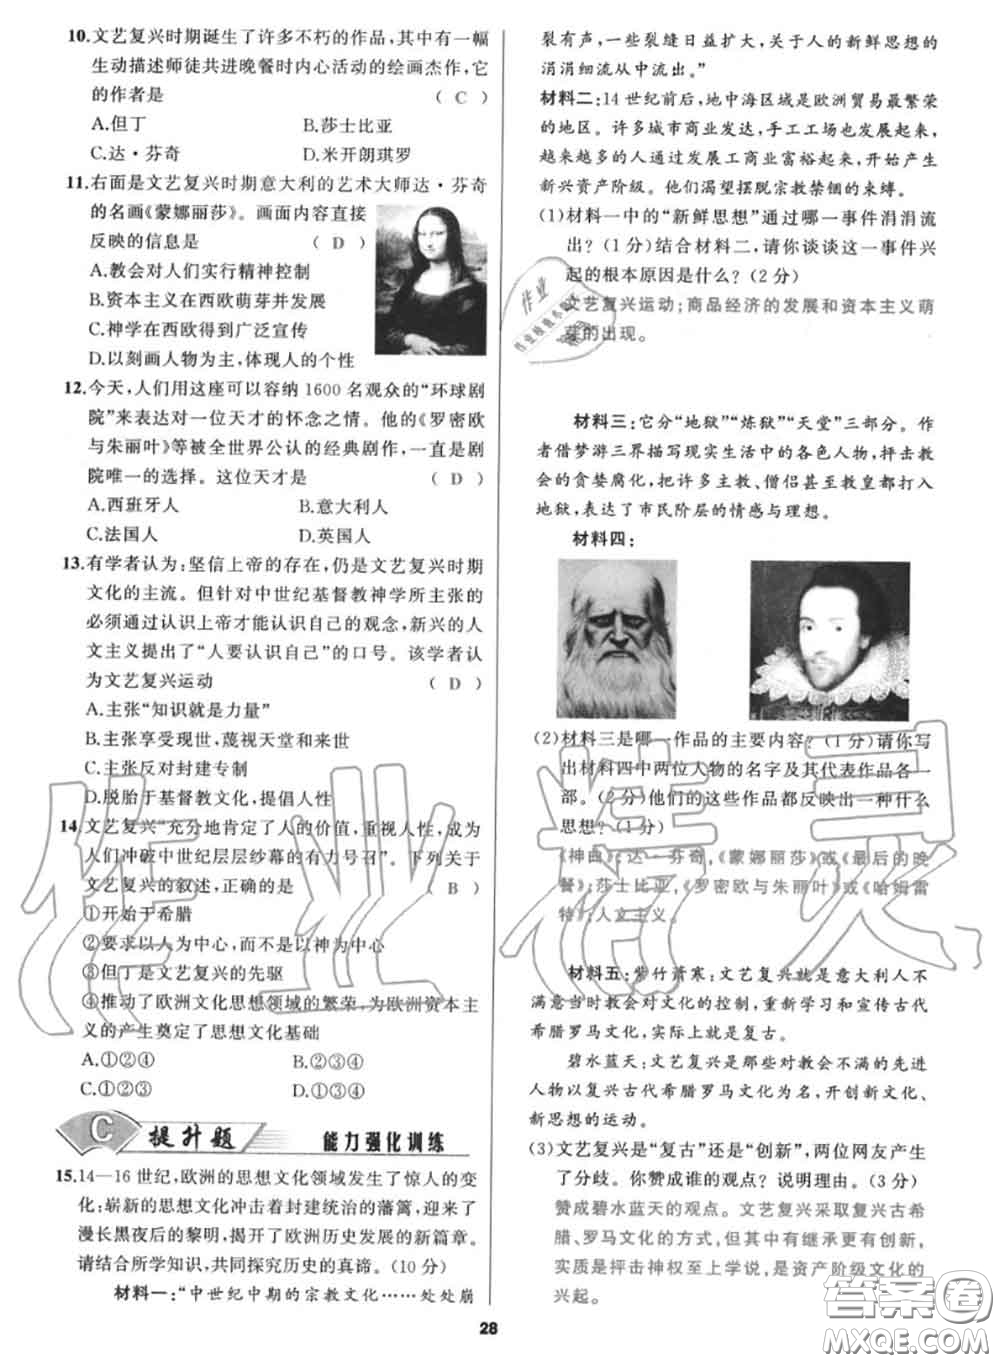 10.文艺复兴时期诞生了许多不朽的作品,其中有一幅
生动描述师徒共进晚餐时内心活动的绘画杰作,它
的作者是 ( C )
A.但丁 B.莎士比亚
C.达·芬奇 D.米开朗琪罗
11.右面是文艺复兴时期意大利的艺术大师达·芬奇
的名画《蒙娜丽莎》。画面内容直接
反映的信息是 ( D )
A.教会对人们实行精神控制
B.资本主义在西欧萌芽并发展
C.神学在西欧得到广泛宣传
D.以刻画人物为主,体现人的个性
12.今天,人们用这座可以容纳 1600 名观众的“环球剧
院”来表达对一位天才的怀念之情。他的《罗密欧
与朱丽叶》等被全世界公认的经典剧作,一直是剧
院唯一的选择。这位天才是 ( D )
A.西班牙人 B.意大利人
C.法国人 D.英国人
13.有学者认为:坚信上帝的存在,仍是文艺复兴时期
文化的主流。但针对中世纪基督教神学所主张的
必须通过认识上帝才能认识自己的观念,新兴的人
文主义提出了“人要认识自己”的口号。该学者认
为文艺复兴运动 ( D )
A.主张“知识就是力量”
B.主张享受现世,蔑视天堂和来世
C.主张反对封建专制
D.脱胎于基督教文化,提倡人性
14.文艺复兴“充分地肯定了人的价值,重视人性,成为
人们冲破中世纪层层纱幕的有力号召”。下列关于
文艺复兴的叙述,正确的是 ( B )
①开始于希腊
②要求以人为中心,而不是以神为中心
③但丁是文艺复兴的先驱
④推动了欧洲文化思想领域的繁荣,为欧洲资本主
义的产生奠定了思想文化基础
A.①②④ B.②③④
C.①②③ D.①③④
C 提升题 能力强化训练
15.14—16 世纪,欧洲的思想文化领域发生了惊人的变
化;崭新的思想文化冲击着封建统治的藩篱,迎来了
漫长黑夜后的黎明,揭开了欧洲历史发展的新篇章。
请结合所学知识,共同探究历史的真谛。(10 分)
材料一:“中世纪中期的宗教文化……处处崩
裂有声,一些裂缝日益扩大,关于人的新鲜思想的
涓涓细流从中流出。”
材料二:14 世纪前后,地中海区域是欧洲贸易最繁荣
的地区。许多城市商业发达,手工工场也发展起来,
越来越多的人通过发展工商业富裕起来,开始产生
新兴资产阶级。他们渴望摆脱宗教禁锢的束缚。
(1)材料一中的“新鲜思想”通过哪一事件涓涓流
出?(1 分)结合材料二,请你谈谈这一事件兴
起的根本原因是什么?(2 分)
文艺复兴运动;商品经济的发展和资本主义萌
芽的出现。
材料三:它分“地狱”“炼狱”“天堂”三部分。作
者借梦游三界描写现实生活中的各色人物,抨击教
会的贪婪腐化,把许多主教、僧侣甚至教皇都打入
地狱,表达了市民阶层的情感与理想。
材料四:
(2)材料三是哪一作品的主要内容?(1 分)请你写
出材料四中两位人物的名字及其代表作品各一
部。(2 分)他们的这些作品都反映出一种什么
思想?(1 分)
《神曲》;达·芬奇,《蒙娜丽莎》或《最后的晚
餐》;莎士比亚,《罗密欧与朱丽叶》或《哈姆雷
特》;人文主义。
材料五:紫竹萧寒:文艺复兴就是意大利人不
满意当时教会对文化的控制,重新学习和宣传古代
希腊罗马文化,实际上就是复古。
碧水蓝天:文艺复兴是那些对教会不满的先进
人物以复兴古代希腊罗马文化为名,开创新文化、
新思想的运动。
(3)文艺复兴是“复古”还是“创新”,两位网友产生
了分歧。你赞成谁的观点?说明理由。(3 分)
赞成碧水蓝天的观点。文艺复兴采取复兴古希
腊、罗马文化的方式,但其中有继承更有创新,
实质是抨击神权至上学说,是资产阶级文化的
兴起。
28
作业精灵
答案圈
MXQE.COM